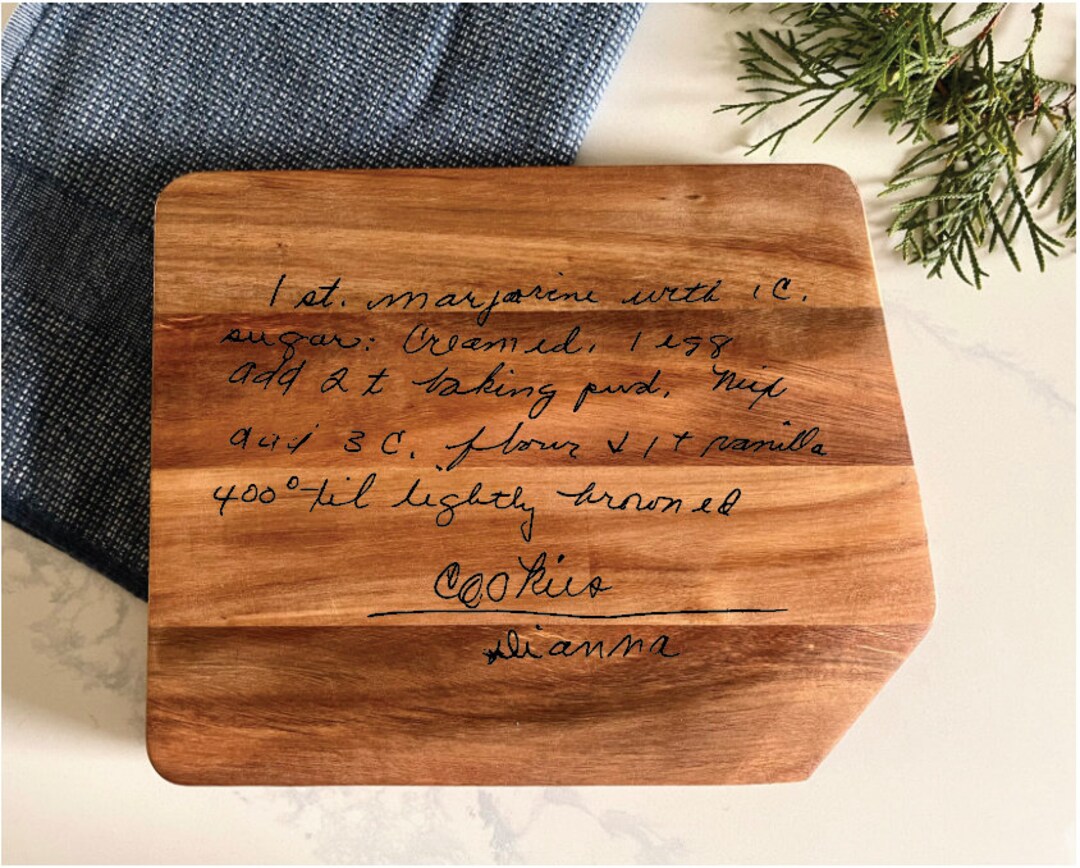 1 st. marjorine with 1 C.
sugar: Creamed, 1 egg
add 2 t baking pwd, Mix
add 3 C. flour & 1 t vanilla
400° til lightly browned
Cookies
Dianna